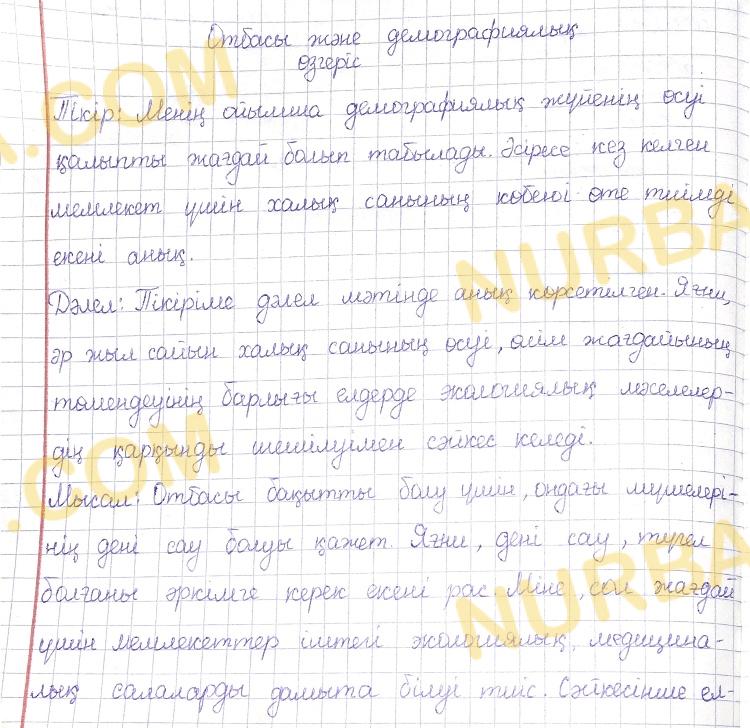 Отбасы және демографиялық
өзгеріс
Пікір: Менің ойымша демографиялық жүйенің өсуі
қалыпты жағдай болып табылады. Әсіресе кез келген
мемлекет үшін халық санының көбеюі өте тиімді
екені анық.
Дәлел: Пікіріме дәлел мәтінде анық көрсетілген. Яғни,
әр жыл сайын халық санының өсуі, өлім жағдайының
төмендеуінің барлығы елдерде экологиялық мәселелер-
дің қарқынды шешілуімен сәйкес келеді.
Мысал: Отбасы бақытты болу үшін, ондағы мүшелері-
нің дені сау болуы қажет. Яғни, дені сау, түгел
болғаны әркімге керек екені рас. Міне, сол жағдай
үшін мемлекеттер іштегі экологиялық, медицина-
лық салаларды дамыта білуі тиіс. Сәйкесінше ел-
NURBA
.COM
NURBA
.COM